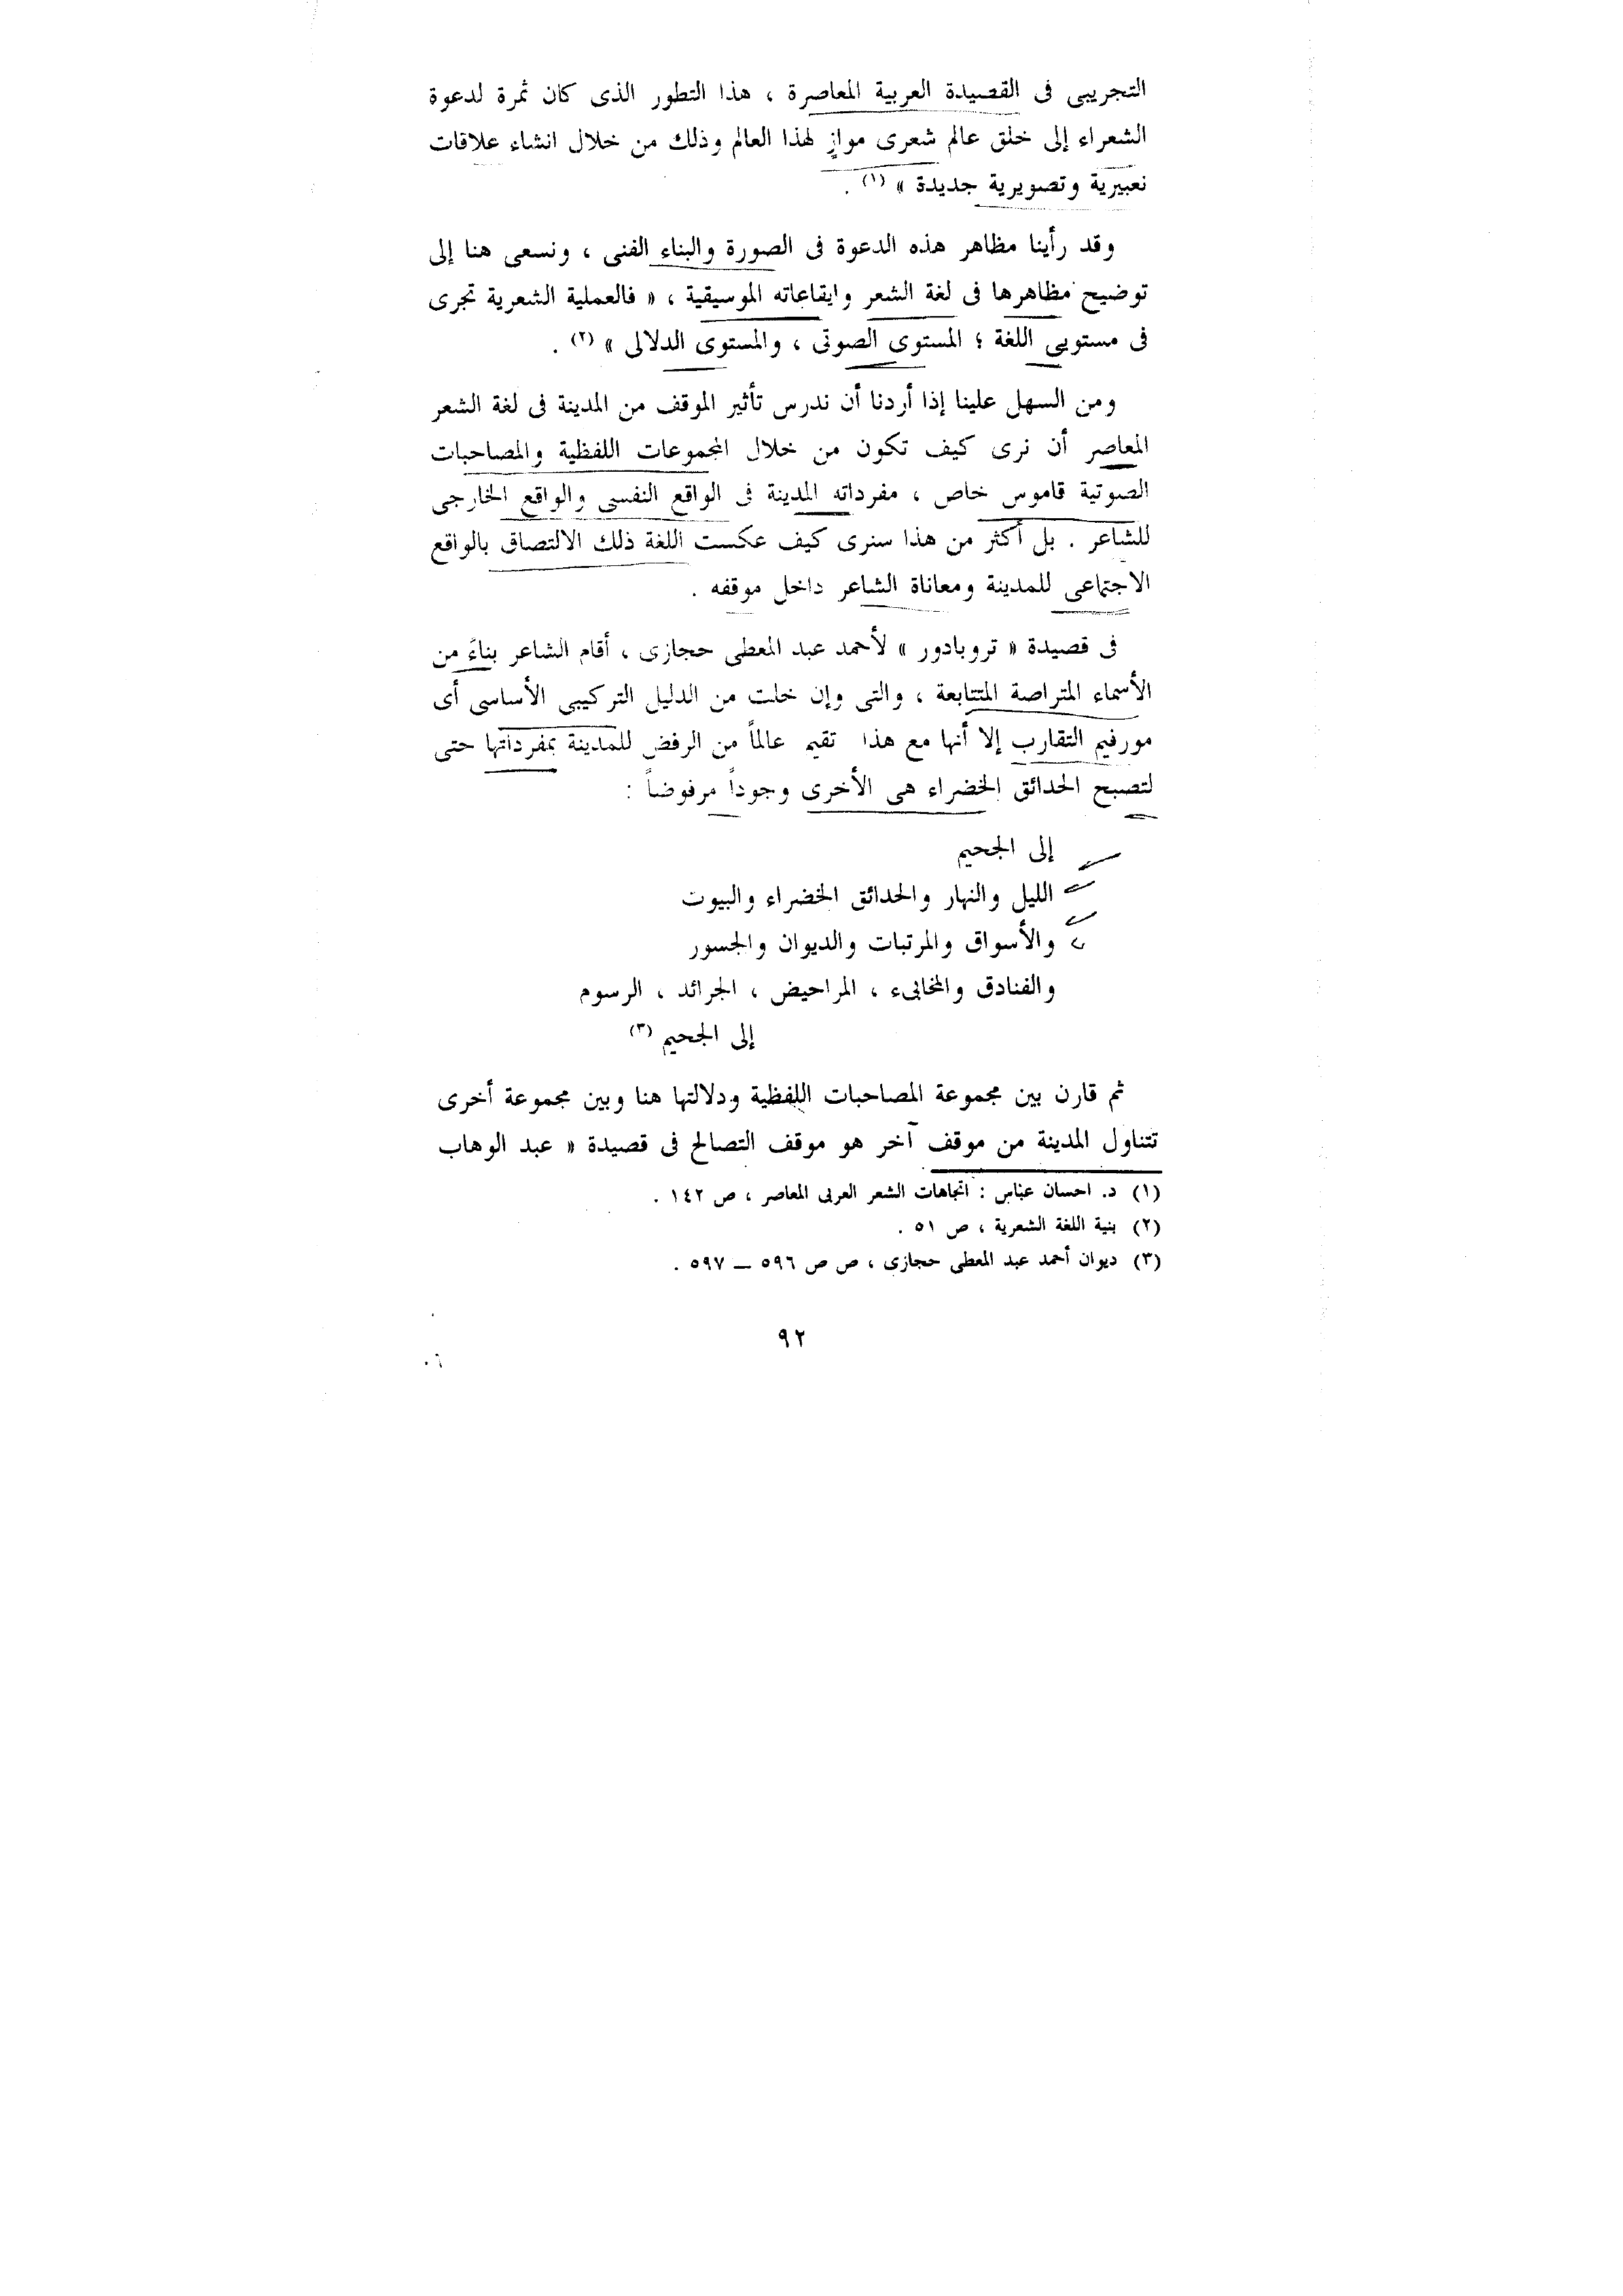 التجريبى فى القصيدة العربية المعاصرة ، هذا التطور الذى كان ثمرة لدعوة
الشعراء إلى خلق عالم شعرى موازٍ لهذا العالم وذلك من خلال انشاء علاقات
تعبيرية وتصويرية جديدة » (١) .
وقد رأينا مظاهر هذه الدعوة فى الصورة والبناء الفنى ، ونسعى هنا إلى
توضيح مظاهرها فى لغة الشعر وايقاعاته الموسيقية ، « فالعملية الشعرية تجرى
فى مستويى اللغة ؛ المستوى الصوتى ، والمستوى الدلالى » (٢) .
ومن السهل علينا إذا أردنا أن ندرس تأثير الموقف من المدينة فى لغة الشعر
المعاصر أن نرى كيف تكون من خلال المجموعات اللفظية والمصاحبات
الصوتية قاموس خاص ، مفرداته المدينة فى الواقع النفسى والواقع الخارجى
للشاعر . بل أكثر من هذا سنرى كيف عكست اللغة ذلك الالتصاق بالواقع
الاجتماعى للمدينة ومعاناة الشاعر داخل موقفه .
فى قصيدة « تروبادور » لأحمد عبد المعطى حجازى ، أقام الشاعر بناءً من
الأسماء المتراصة المتتابعة ، والتى وإن خلت من الدليل التركيبى الأساسى أى
مورفيم التقارب إلا أنها مع هذا تقيم عالماً من الرفض للمدينة بمفرداتها حتى
لتصبح الحدائق الخضراء هى الأخرى وجوداً مرفوضاً :
إلى الجحيم
الليل والنهار والحدائق الخضراء والبيوت
والأسواق والمرتبات والديوان والجسور
والفنادق والمخابىء ، المراحيض ، الجرائد ، الرسوم
إلى الجحيم (٣)
ثم قارن بين مجموعة المصاحبات اللفظية ودلالتها هنا وبين مجموعة أخرى
تتناول المدينة من موقف آخر هو موقف التصالح فى قصيدة « عبد الوهاب
(١) د. احسان عباس : اتجاهات الشعر العربى المعاصر ، ص ١٤٢ .
(٢) بنية اللغة الشعرية ، ص ٥١ .
(٣) ديوان أحمد عبد المعطى حجازى ، ص ص ٥٩٦ ــ ٥٩٧ .
٩٢